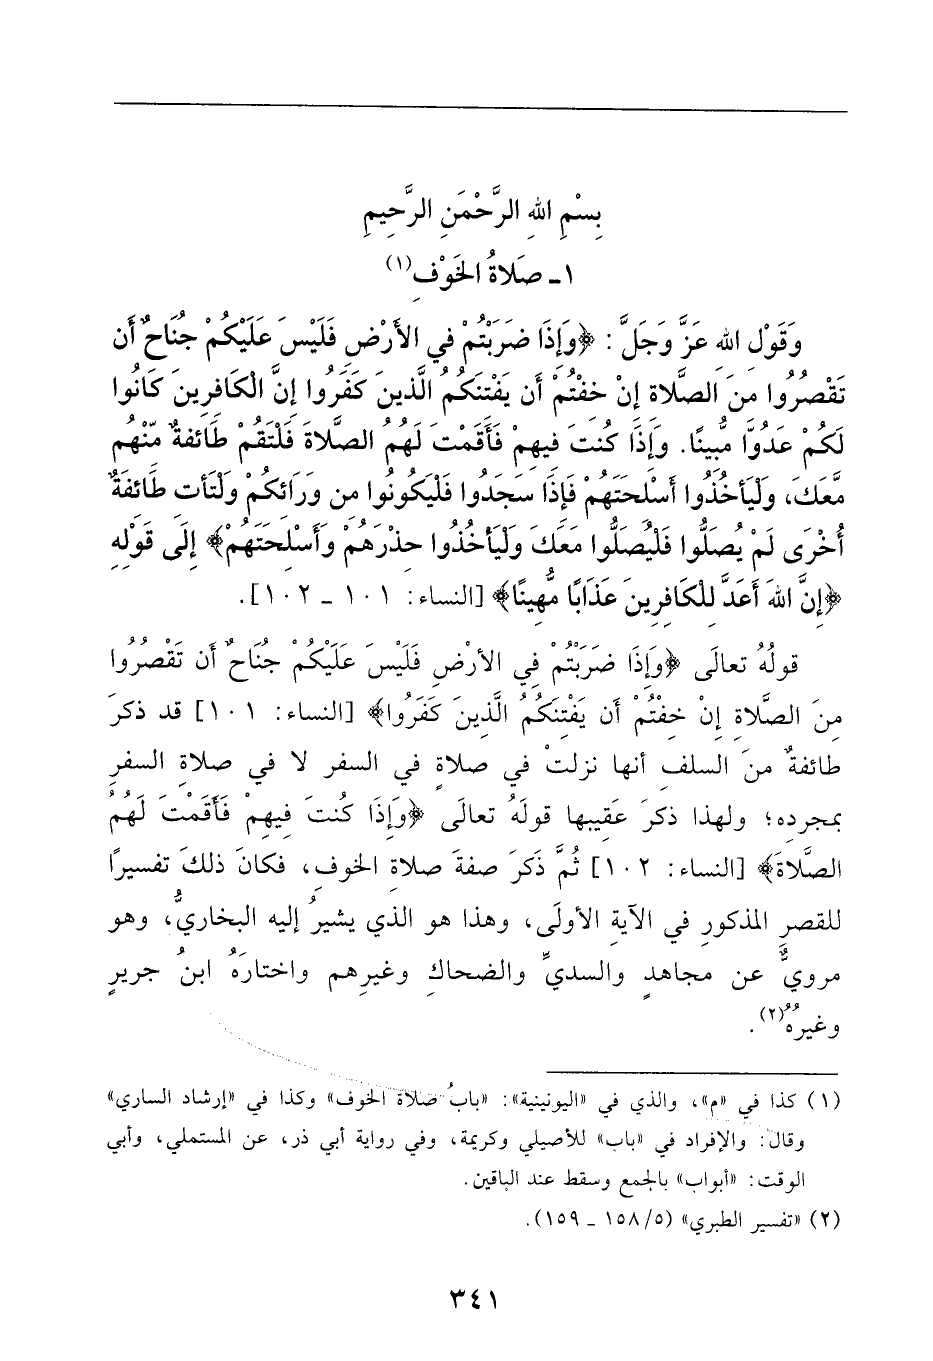 بِسْمِ اللهِ الرَّحْمَنِ الرَّحِيمِ
١ـ صَلَاةُ الخَوْفِ(١)
وَقَوْلِ اللهِ عَزَّ وَجَلَّ : ﴿وَإِذَا ضَرَبْتُمْ فِي الأَرْضِ فَلَيْسَ عَلَيْكُمْ جُنَاحٌ أَن
تَقْصُرُوا مِنَ الصَّلَاةِ إِنْ خِفْتُمْ أَن يَفْتِنَكُمُ الَّذِينَ كَفَرُوا إِنَّ الْكَافِرِينَ كَانُوا
لَكُمْ عَدُوًّا مُّبِينًا. وَإِذَا كُنتَ فِيهِمْ فَأَقَمْتَ لَهُمُ الصَّلَاةَ فَلْتَقُمْ طَائِفَةٌ مِّنْهُم
مَّعَكَ، وَلْيَأْخُذُوا أَسْلِحَتَهُمْ فَإِذَا سَجَدُوا فَلْيَكُونُوا مِن وَرَائِكُمْ وَلْتَأْتِ طَائِفَةٌ
أُخْرَى لَمْ يُصَلُّوا فَلْيُصَلُّوا مَعَكَ وَلْيَأْخُذُوا حِذْرَهُمْ وَأَسْلِحَتَهُمْ﴾ إِلَى قَوْلِهِ
﴿إِنَّ اللهَ أَعَدَّ لِلْكَافِرِينَ عَذَابًا مُّهِينًا﴾ [النساء: ١٠١ ـ ١٠٢].
قولُهُ تعالَى ﴿وَإِذَا ضَرَبْتُمْ فِي الأَرْضِ فَلَيْسَ عَلَيْكُمْ جُنَاحٌ أَن تَقْصُرُوا
مِنَ الصَّلاةِ إِنْ خِفْتُمْ أَن يَفْتِنَكُمُ الَّذِينَ كَفَرُوا﴾ [النساء: ١٠١] قد ذكرَ
طائفةٌ منَ السلفِ أنها نزلتْ في صلاةٍ في السفر لا في صلاةِ السفرِ
بمجرده؛ ولهذا ذكرَ عَقِيبها قولَهُ تعالَى ﴿وَإِذَا كُنتَ فِيهِمْ فَأَقَمْتَ لَهُمُ
الصَّلاةَ﴾ [النساء: ١٠٢] ثُمَّ ذَكَرَ صفةَ صلاةِ الخوفِ، فكانَ ذلكَ تفسيرًا
للقصرِ المذكورِ في الآيةِ الأولَى، وهذا هو الذي يشيرُ إليه البخاريُّ، وهو
مرويٌّ عن مجاهدٍ والسديِّ والضحاكِ وغيرِهم واختارَهُ ابنُ جريرٍ
وغيرُهُ(٢).
(١) كذا في «م»، والذي في «اليونينية»: «بابُ صلاة الخوف» وكذا في «إرشاد الساري»
وقال: والإفراد في «باب» للأصيلي وكريمة، وفي رواية أبي ذر، عن المستملي، وأبي
الوقت: «أبواب» بالجمع وسقط عند الباقين.
(٢) «تفسير الطبري» (٥/ ١٥٨ ـ ١٥٩).
٣٤١